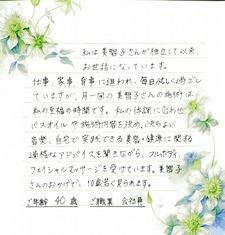 私は美智子さんが独立して以来、
お世話になっています。
仕事、家事、育事に追われ、毎日忙しく過ごし
ていますが、月一回の美智子さんの施術は、
私の至福の時間です。私の体調に合わせ
バスオイルや施術内容を決め、心ちよい
音楽、自宅で実践できる美容・健康に関する
適格なアドバイスを聞きながら、フルボディ、
フェイシャルマッサージを受けています。美智子
さんのおかげで、10歳若く見られます。
ご年齢 40 歳 ご職業 会社員